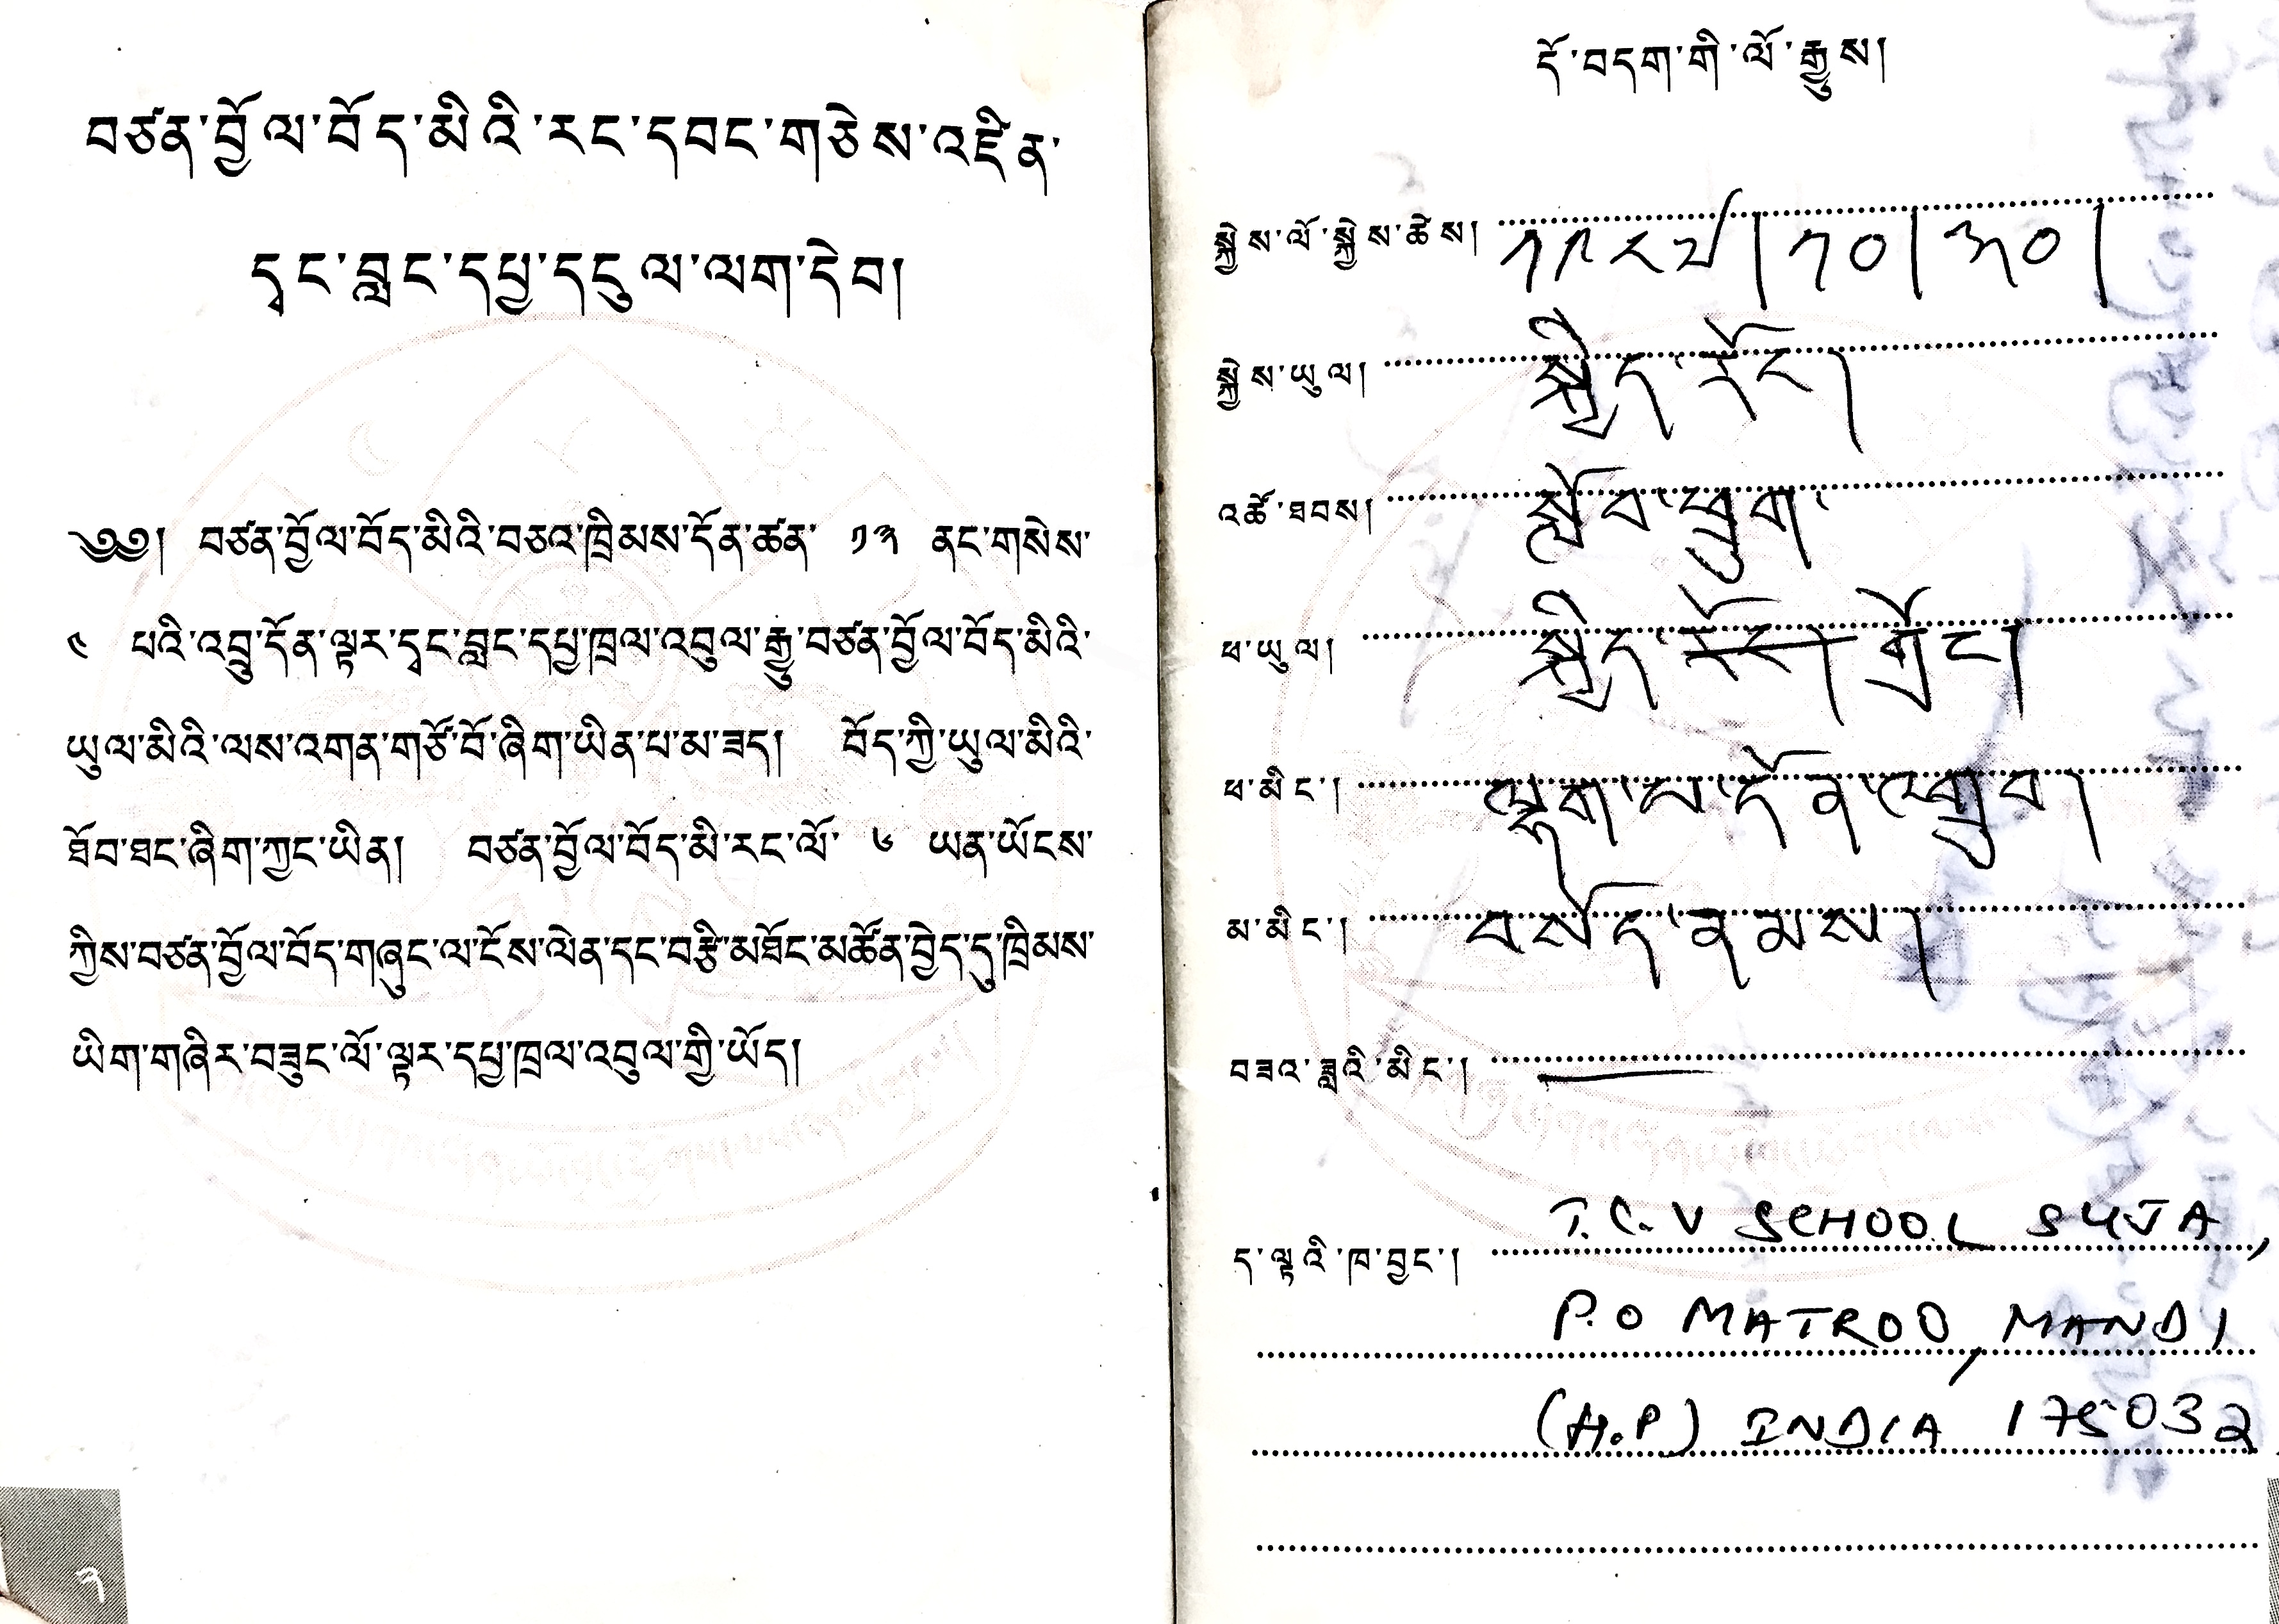 བཙན་བྱོལ་བོད་མིའི་རང་དབང་གཅེས་འཛིན་
དྭང་བླང་དཔྱ་དངུལ་ལག་དེབ།
༄༅། བཙན་བྱོལ་བོད་མིའི་བཅའ་ཁྲིམས་དོན་ཚན་ ༡༣ ནང་གསེས་
༤ པའི་འབྲུ་དོན་ལྟར་དྭང་བླང་དཔྱ་ཁྲལ་འབུལ་རྒྱུ་བཙན་བྱོལ་བོད་མིའི་
ཡུལ་མིའི་ལས་འགན་གཙོ་བོ་ཞིག་ཡིན་པ་མ་ཟད། བོད་ཀྱི་ཡུལ་མིའི་
ཐོབ་ཐང་ཞིག་ཀྱང་ཡིན། བཙན་བྱོལ་བོད་མི་རང་ལོ་ ༦ ཡན་ཡོངས་
ཀྱིས་བཙན་བྱོལ་བོད་གཞུང་ལ་ངོས་ལེན་དང་བརྩི་མཐོང་མཚོན་བྱེད་དུ་ཁྲིམས་
ཡིག་གཞིར་བཟུང་ལོ་ལྟར་དཔྱ་ཁྲལ་འབུལ་གྱི་ཡོད།
༣
དོ་བདག་གི་ལོ་རྒྱུས།
སྐྱེས་ལོ་སྐྱེས་ཚེས། ༡༩༨༧།༡༠།༣༠།
སྐྱེས་ཡུལ། སྐྱིད་རོང།
འཚོ་ཐབས། སློབ་ཕྲུག་
ཕ་ཡུལ། སྐྱིད་རོང། གྲོང།
ཕ་མིང་། ལྷག་པ་དོན་འགྲུབ།
མ་མིང་། བསོད་ནམས།
བཟའ་ཟླའི་མིང་།
ད་ལྟའི་ཁ་བྱང་། T.C.V SCHOOL SUJA,
P.O MATROO, MANDI
(H.P) INDIA 175032